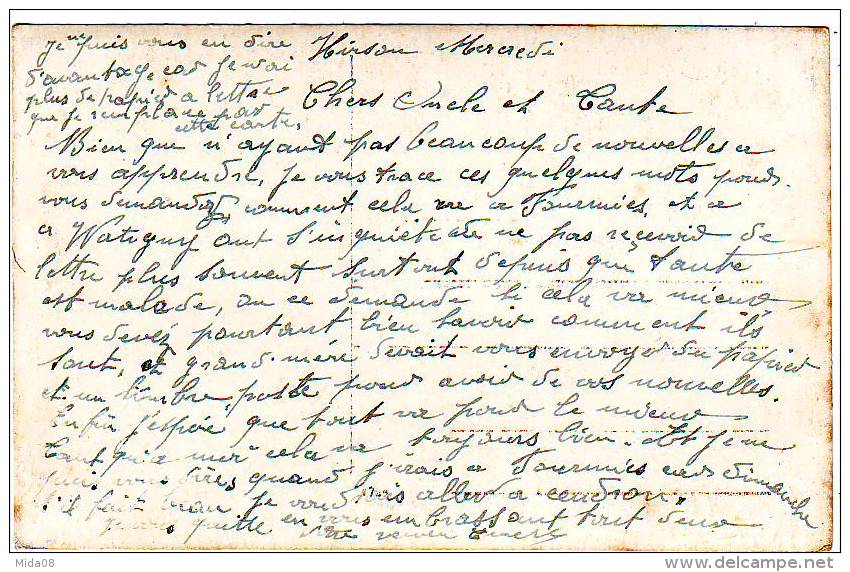 Hirson Mercredi
Chers Oncle et Tante
Bien que n'ayant pas beaucoup de nouvelles a
vous apprendre, je vous trace ces quelques mots pour
vous demander comment cela va a Fourmies, et a
a Watigny ont s'inquiéte de ne pas reçevoir de
lettre plus souvent surtout depuis que tante
est malade, on ce demande si cela va mieux
vous devéz pourtant bien savoir comment ils
sont, et grand-mère devait vous envoyer du papier
et un timbre poste pour avoir de vos nouvelles.
Enfin j'espère que tout va pour le mieux
tant qu'a moi cela va toujours bien. Et je ne
puis vous dire, quand j'irais a Fourmies car dimanche
s'il fait beau je voudrais aller a cendron.
Je vous quitte en vous embrassant tout deux
Votre neveu
Je ne puis vous en dire
d'avantage car je n'ai
plus de papier a lettre
que je remplace par
cette carte.
Mida08
delcampe.net